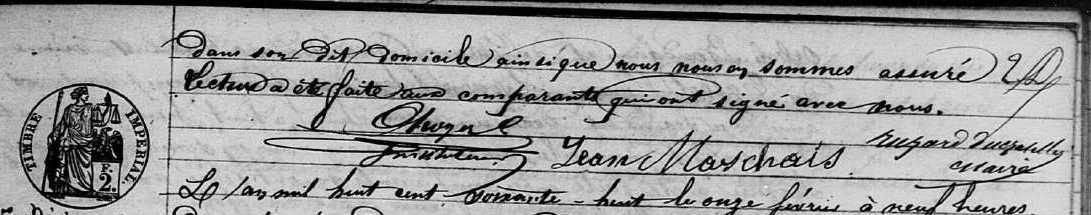 dans son dit domicile ainsi que nous nous en sommes assuré
lecture a été faite aux comparants qui ont signé avec nous.
TIMBRE IMPERIAL
2.
Jean Marchais
maire
L'an mil huit cent soixante-huit le onze février à neuf heures